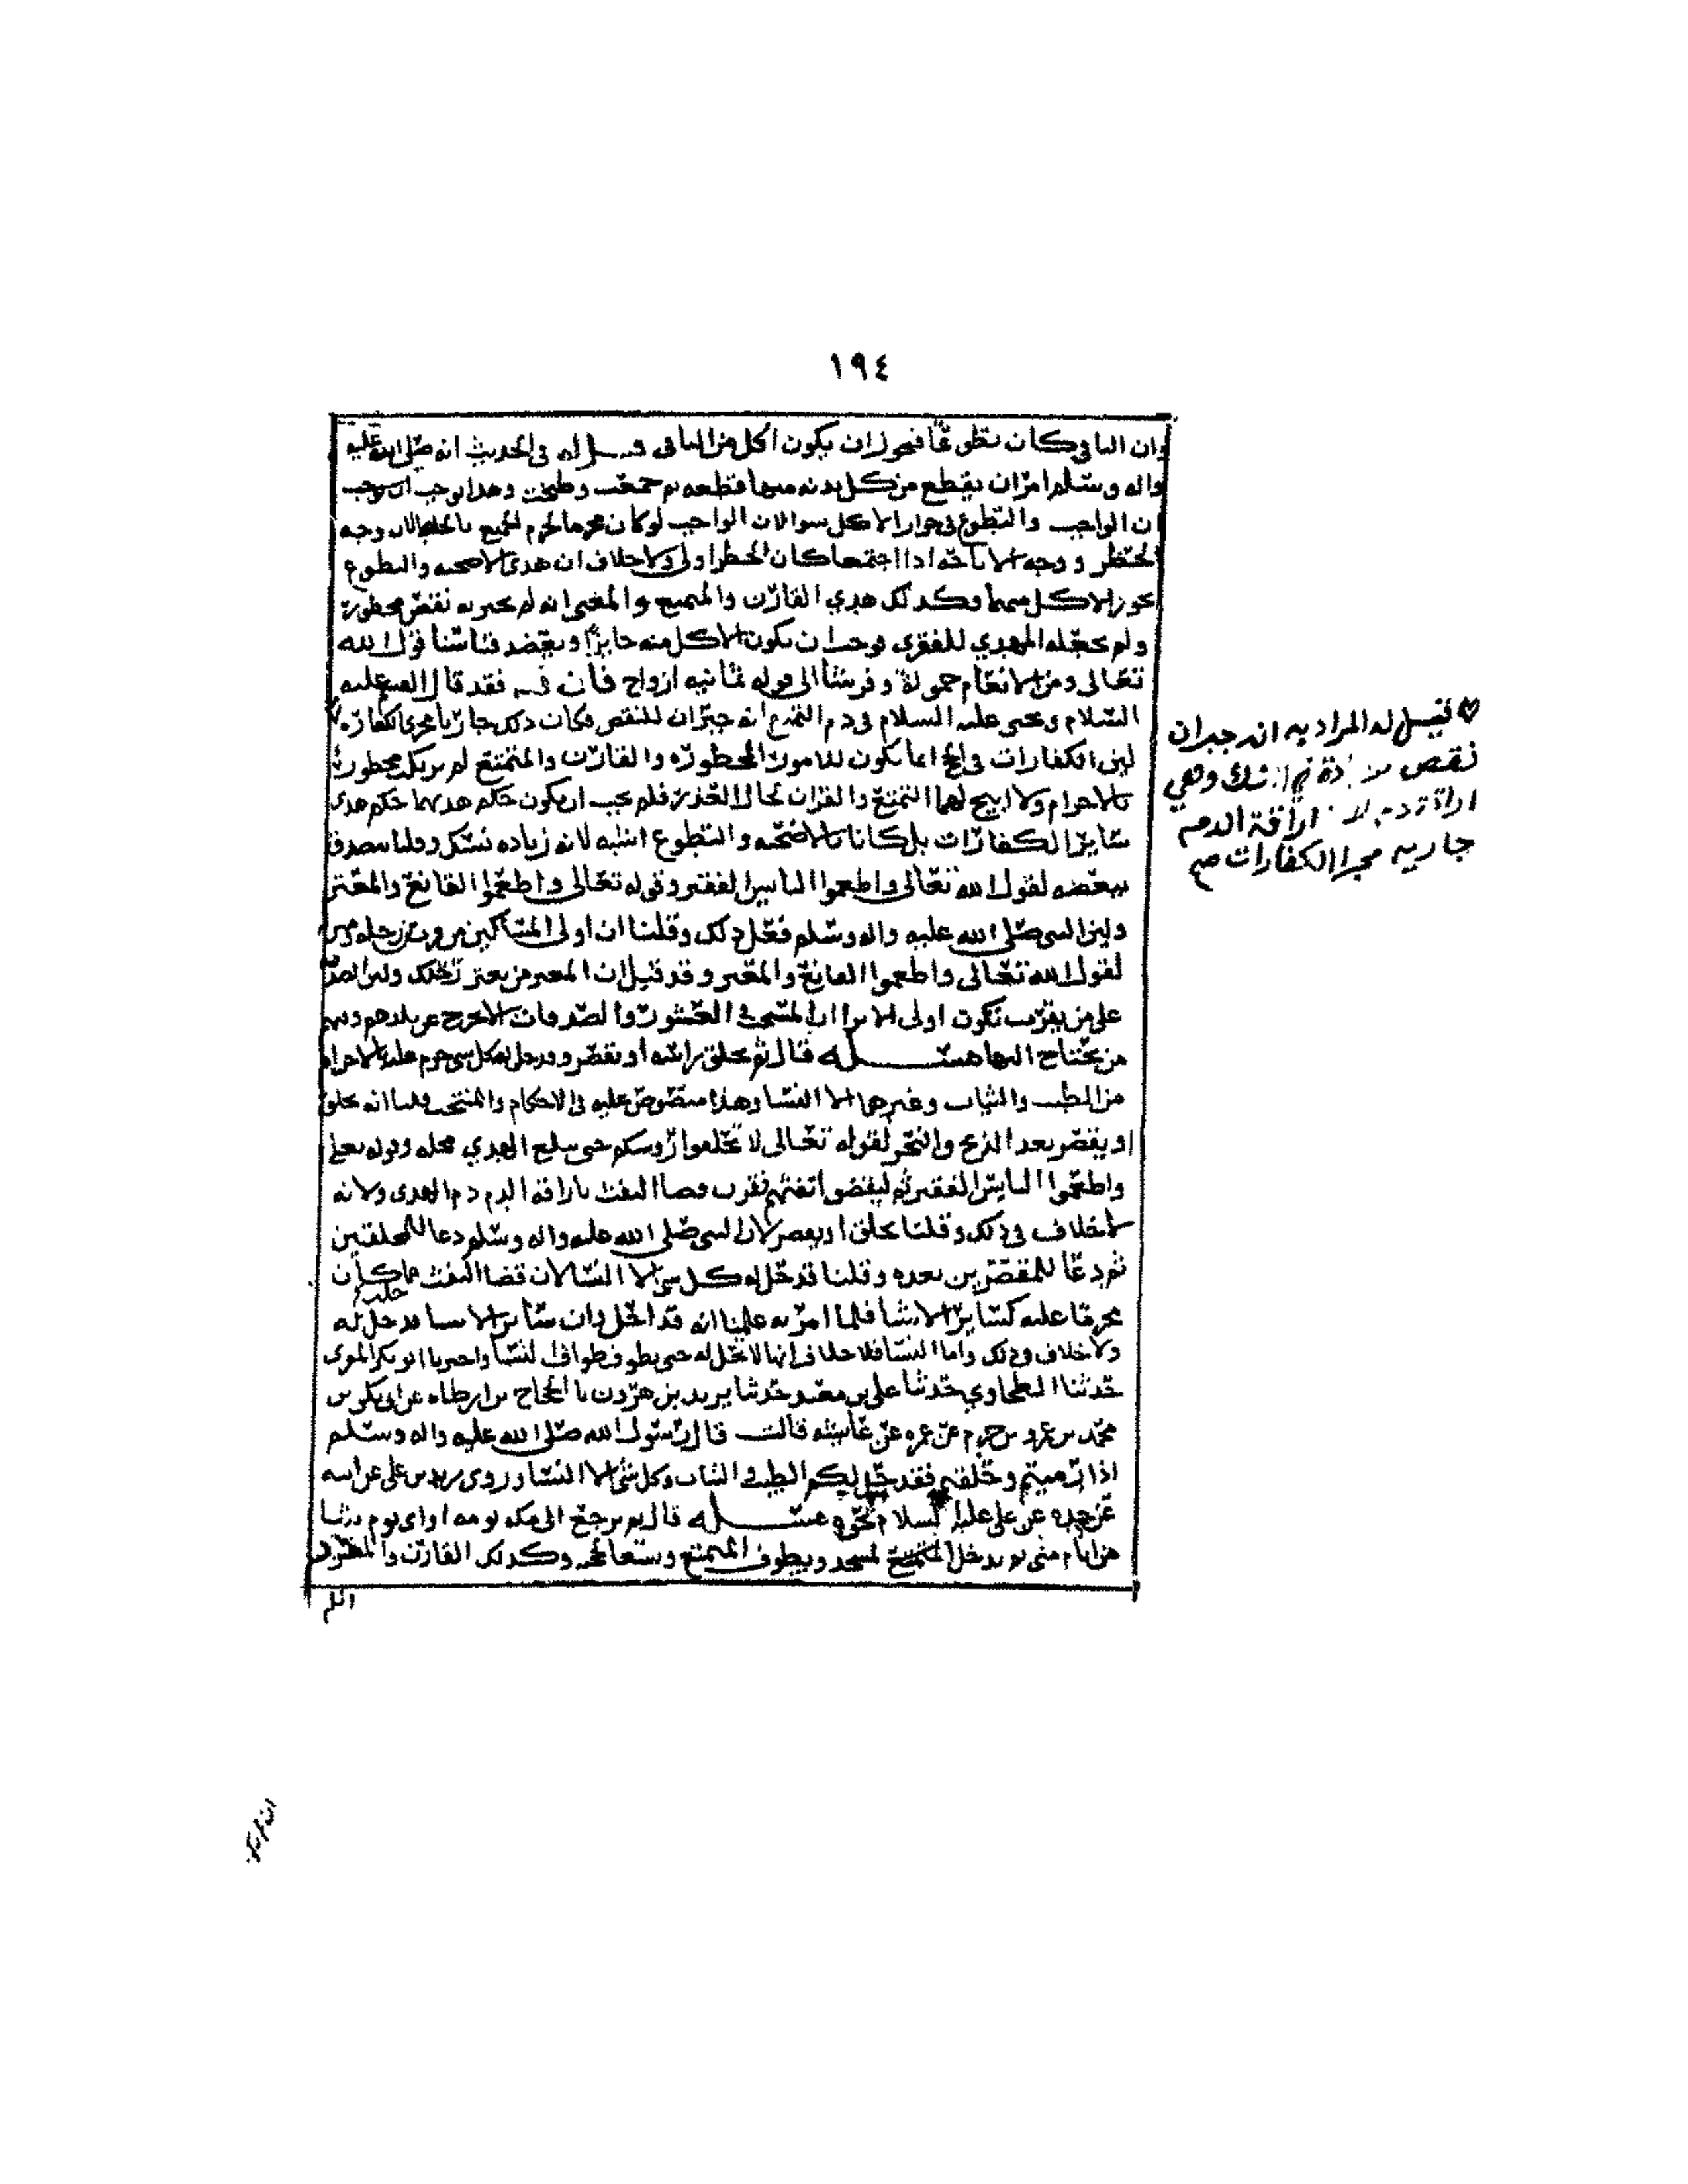 ١٩٤
وان الباقي كان تطوعا فيجوز ان يكون اكل من الباقي قيل له في الحديث انه صلى الله عليه
واله وسلم امر ان يقطع من كل بدنه منها قطعه ثم جمعت وطبخت وهذا يوجب ان يوجب
ان الواجب والتطوع في جواز الاكل سوا لان الواجب لو كان محرما لحرم الجميع بالخلط لان وجه
الحظر و وجه الاباحه اذا اجتمعا كان الحظر اولى ولا خلاف ان هدي الاضحيه والتطوع
يجوز الاكل منهما وكذلك هدي القارن والمتمتع والمعنى انه لم يجبر به نقص محظورة
ولم يجعله المهدي للفقرى فوجب ان يكون الاكل منه جايزا ويعضد قياسنا قول الله
تعالى ومن الانعام حمولة وفرشا الى قوله ثمانيه ازواج فان قيل فقد قال القسم عليه
السلام ويحيى عليه السلام في دم التمتع انه جبران للنقص فكان ذلك جاريا مجرى الكفارة
لان الكفارات في الحج انما تكون للامور المحظوره والقارن والمتمتع لم يرتكبا محظورا
بالاحرام ولا ابيح لهما التمتع والقران لحال العذر فلم يجب ان يكون حكم هديهما حكم هدي
سائر الكفارات بل كانا بالاضحيه والتطوع اشبه لانه زياده نسك وقلنا يتصدق
ببعضه لقول الله تعالى واطعموا البايس الفقير وقوله تعالى واطعموا القانع والمعتر
ولان النبي صلى الله عليه واله وسلم فعل ذلك وقلنا ان اولى المساكين من قرب من رحله
لقول الله تعالى واطعموا القانع والمعتر وقد قيل ان المعتر من يعتر رحلك ولان الصدقة
على من يقرب تكون اولى الا ترا ان المستحب في العشور والصدقات الا تخرج عن بلدهم وفيهم
من يحتاج اليها مسئلة قال ثم يحلق راسه او يقصر وقد حل له كل شي حرم عليه بالاحرام
من الطيب والثياب وغيرها الا النسا وهذا منصوص عليه في الاحكام والمنتخب وقلنا انه يحلق
او يقصر بعد الذبح والنحر لقوله تعالى لا تحلقوا روسكم حتى يبلغ الهدي محله وقوله تعالى
واطعموا البايس الفقير ثم ليقضوا تفثهم فقرب قضا التفث باراقة الدم دم الهدي ولانه
لا خلاف في ذلك وقلنا يحلق او يقصر لان النبي صلى الله عليه واله وسلم دعا للمحلقين
ثم دعا للمقصرين بعده وقلنا قد حل له كل شي الا النسا لان قضا التفث مما كان
محرما عليه كسائر الاشيا فلما امر به علمنا انه قد احل وان سائر الاشيا قد حل له
ولا خلاف في ذلك واما النسا فلا خلاف انها لا تحل له حتى يطوف طواف النسا واخبرنا ابو بكر المقري
حدثنا الطحاوي حدثنا علي بن معبد حدثنا يزيد بن هرون نا الحجاج بن ارطاه عن ابي بكر بن
محمد بن عمرو بن حزم عن عمره عن عايشه قالت قال رسول الله صلى الله عليه واله وسلم
اذا رميتم وحلقتم فقد حل لكم الطيب والثياب وكل شي الا النسا وروى زيد بن علي عن ابيه
عن جده عن علي عليه السلام نحوه مسئلة قال ثم يرجع الى مكه يومه او اي يوم شا
من ايام منى ثم يدخل المتمتع المسجد ويطوف المتمتع وسعا لحجه وكذلك القارن والمفرد
انلم
قيل له المراد به انه جبران
نقص من
اراقة الدم
جاريه مجرا الكفارات صح